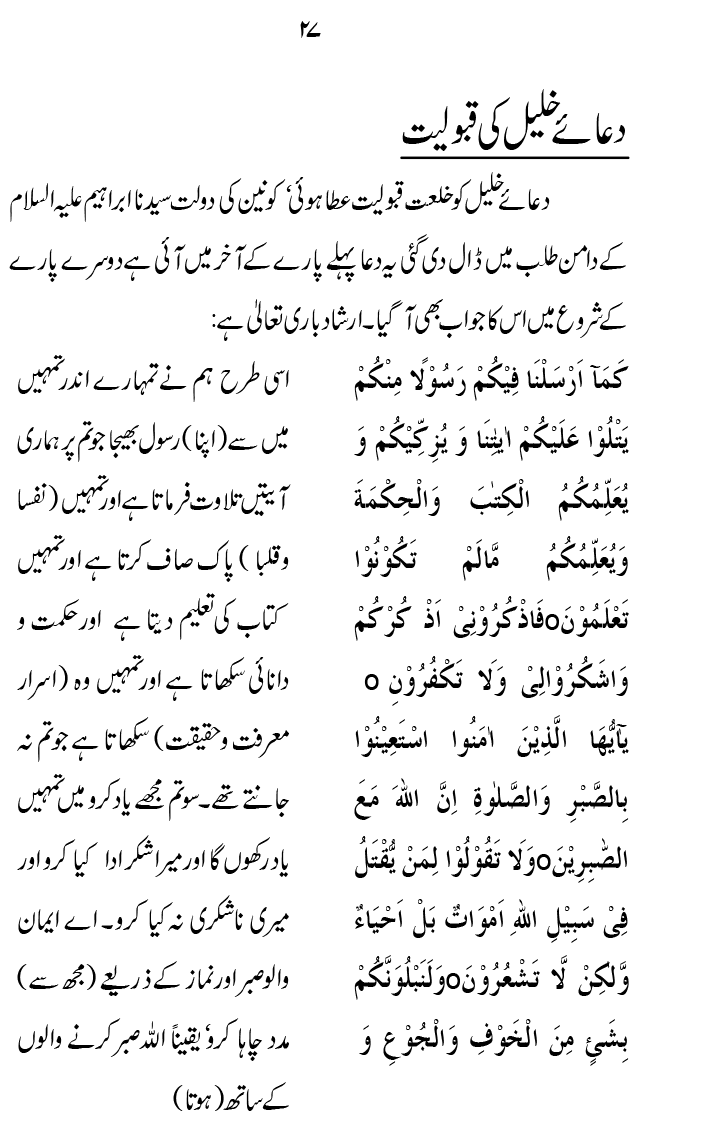 ۲۷
دعائے خلیل کی قبولیت
دعائے خلیل کو خلعت قبولیت عطا ہوئی‘ کونین کی دولت سیدنا ابراہیم علیہ السلام
کے دامن طلب میں ڈال دی گئی یہ دعا پہلے پارے کے آخر میں آئی ہے دوسرے پارے
کے شروع میں اس کا جواب بھی آ گیا۔ ارشاد باری تعالیٰ ہے:
کَمَآ اَرْسَلْنَا فِیْکُمْ رَسُوْلًا مِنْکُمْ
یَتْلُوْا عَلَیْکُمْ اٰیٰتِنَا وَ یُزَکِّیْکُمْ وَ
یُعَلِّمُکُمُ الْکِتٰبَ وَالْحِکْمَةَ
وَیُعَلِّمُکُمُ مَّالَمْ تَکُوْنُوْا
تَعْلَمُوْنَoفَاذْکُرُوْنِیْ اَذْ کُرْکُمْ
وَاشَکُرُوْالِیْ وَلَا تَکْفُرُوْنِ o
یٰٓاَیُّھَا الَّذِیْنَ اٰمَنُوا اسْتَعِیْنُوْا
بِالصَّبْرِ وَالصَّلٰوةِ اِنَّ اللهَ مَعَ
الصّٰبِرِیْنَoوَلَا تَقُوْلُوْا لِمَنْ یُّقْتَلُ
فِیْ سَبِیْلِ اللهِ اَمْوَاتٌ بَلْ اَحْیَاءٌ
وَّلٰکِنْ لَّا تَشْعُرُوْنَoوَلَنَبْلُوَنَّکُمْ
بِشَیْءٍ مِنَ الْخَوْفِ وَالْجُوْعِ وَ
اسی طرح ہم نے تمہارے اندر تمہیں
میں سے (اپنا) رسول بھیجا جو تم پر ہماری
آیتیں تلاوت فرماتا ہے اور تمہیں (نفسا
وقلبا ) پاک صاف کرتا ہے اور تمہیں
کتاب کی تعلیم دیتا ہے اور حکمت و
دانائی سکھاتا ہے اور تمہیں وہ (اسرار
معرفت وحقیقت) سکھاتا ہے جو تم نہ
جانتے تھے۔ سو تم مجھے یاد کرو میں تمہیں
یاد رکھوں گا اور میرا شکر ادا کیا کرو اور
میری ناشکری نہ کیا کرو۔ اے ایمان
والو صبر اور نماز کے ذریعے (مجھ سے)
مدد چاہا کرو‘ یقیناً اللہ صبر کرنے والوں
کے ساتھ (ہوتا)